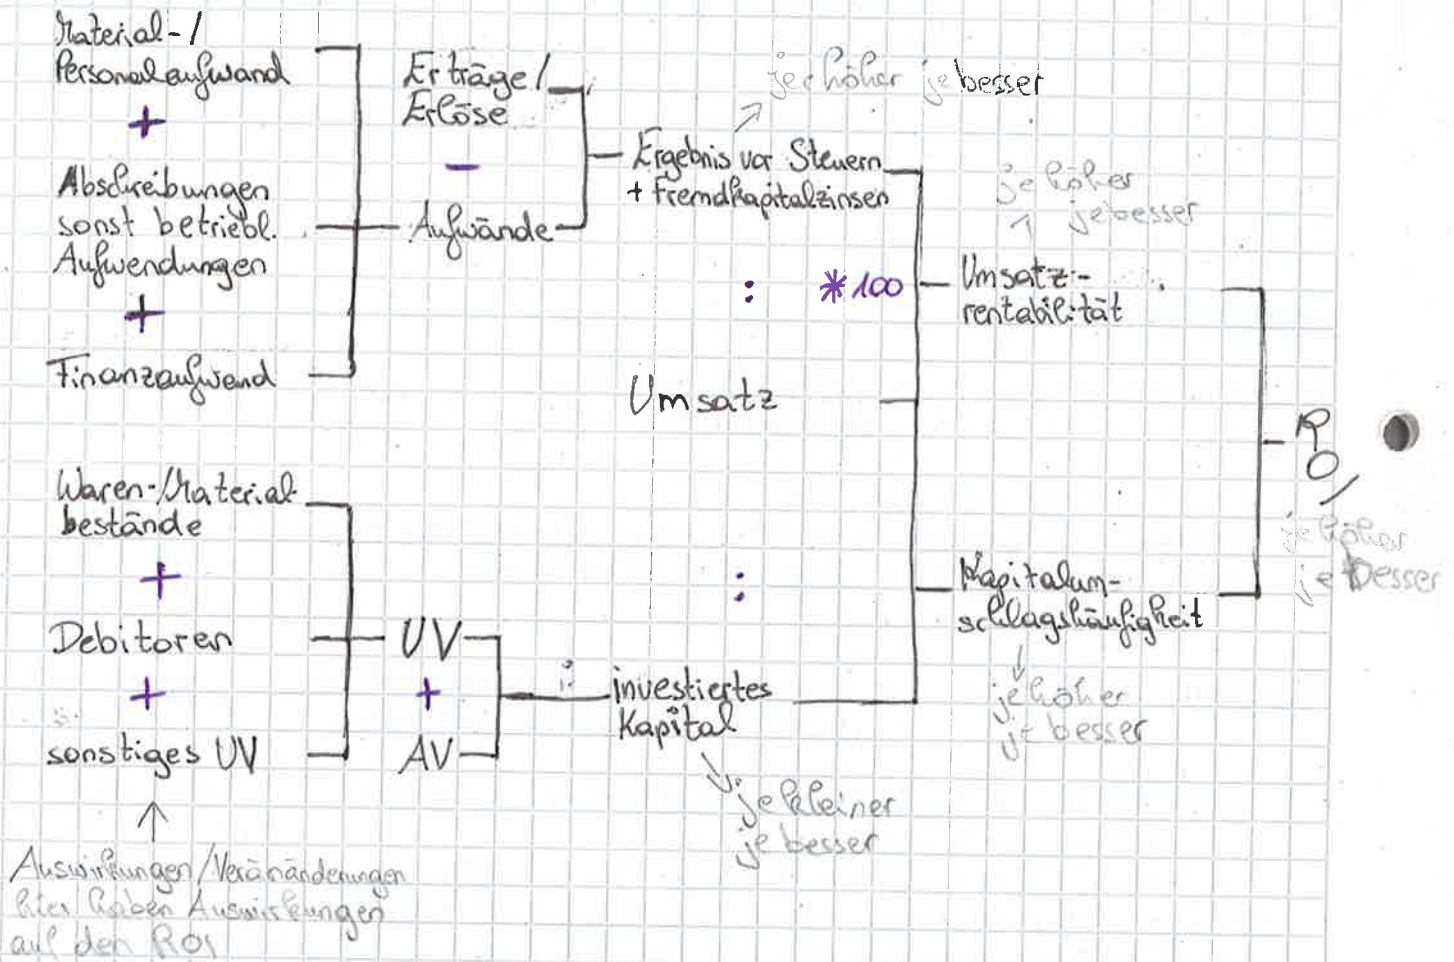 Material-/
Personalaufwand
+
Abschreibungen
sonst betriebl.
Aufwendungen
+
Finanzaufwand
Erträge/
Erlöse
-
Aufwände
je höher je besser
Ergebnis vor Steuern
+ Fremdkapitalzinsen
: *100
Umsatz
je höher
je besser
Umsatz-
rentabilität
R
O
I
je höher
je besser
Waren-/Material-
bestände
+
Debitoren
+
sonstiges UV
UV
+
AV
:
investiertes
Kapital
je kleiner
je besser
Kapitalum-
schlagshäufigkeit
je höher
je besser
Auswirkungen/Veränänderungen
hier haben Auswirkungen
auf den ROI